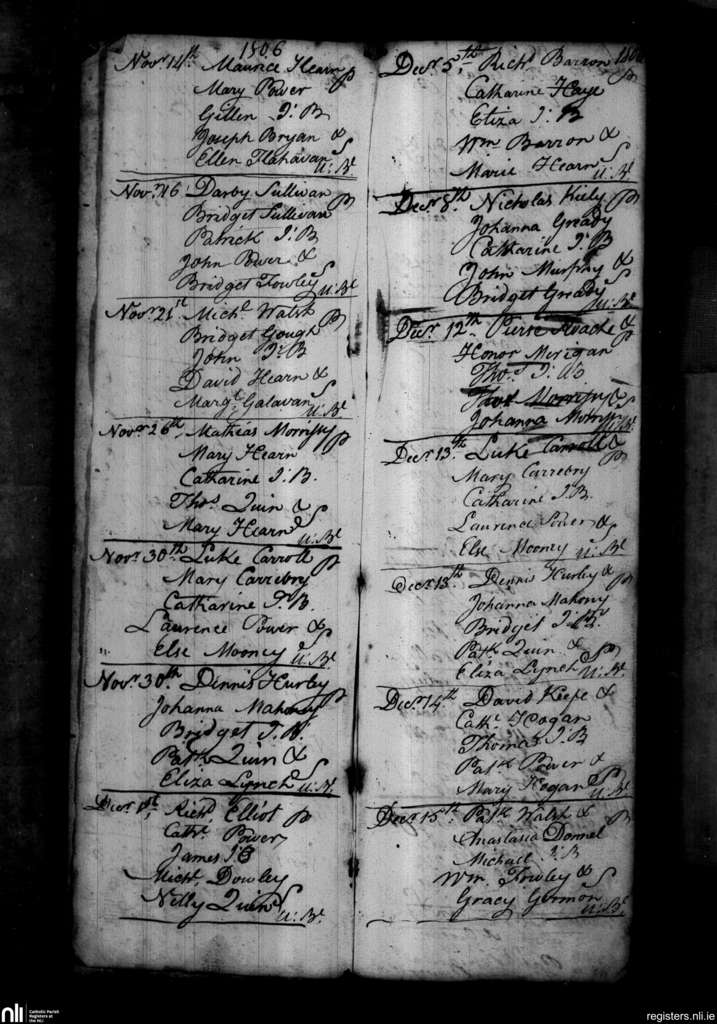 1806
Novr 14th Maurice Hearn P
Mary Power
Gillen I: B
Joseph Bryan &
Ellen Flahavan S
U: Bt
Novr 16 Darby Sullivan
Bridget Sullivan P
Patrick I: B
John Power &
Bridget Fowley S U: Bt
Novr 21st Michl Walsh
Bridget Gough P
John I: B
David Hearn &
Margt Galavan S U: Bt
Novr 26th, Mathias Morrisy P
Mary Hearn
Catharine I: B.
Thos Quin &
Mary Hearn S
U: Bt
Novr 30th Luke Carroll P
Mary Carrebry
Catharine I: B.
Laurence Power &
Else Mooney S U: Bt
Novr 30th Dinnis Hurley
Johanna Mahony P
Bridget I: B.
Patk Quin &
Eliza Lynch S U: Bt
Decr 1st, Richd Elliot P
Cathe Power
James I: B
Michl Dowley
Nelly Quin S U: Bt
Decr 5th, Richd Barron P
Catharine Haye
Eliza I: B
Wm Barron &
Marie Hearn S
U: Bt
Decr 8th. Nicholas Kiely P
Johanna Gready
Catharine I: B
John Murphy &
Bridget Gready S
U: Bt
Decr 12th Pierse Roache &
Honor Merigan P
Thos I: B.
Thos Morrisy & S
Johanna Morrisy U: Bt
Decr 13th. Luke Carroll &
Mary Carrebry P
Catharine I: B.
Laurence Power &
Else Mooney S U: Bt
Decr 13th Dennis Hurley &
Johanna Mahony P
Bridget I: B.
Patk Quin &
Eliza Lynch S U: Bt
Decr 14th David Keefe &
Cathe Hogan P
Thomas I: B
Patk Power &
Mary Hogan S
U: Bt
Decr 15th. Patk Walsh &
Anastasia Donnel P
Michael I: B
Wm. Fowley &
Gracy Gormon S
U: Bt
nli
Catholic Parish
Registers at
the NLI
registers.nli.ie